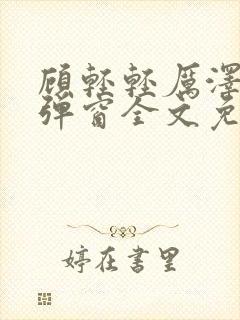 顾轻轻厉澤
弹窗全文免
婷在书里